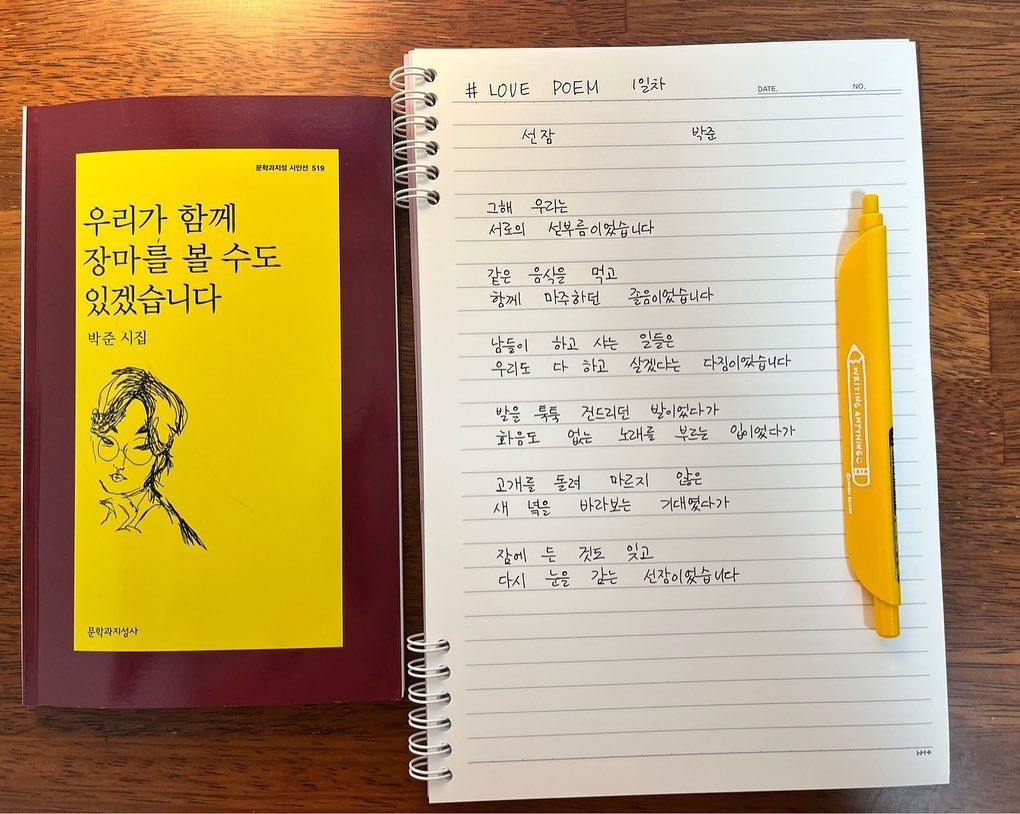 문학과지성 시인선 519
우리가 함께
장마를 볼 수도
있겠습니다
박준 시집
문학과지성사
# LOVE POEM 1일차
DATE. NO.
선잠 박준
그해 우리는
서로의 섣부름이었습니다
같은 음식을 먹고
함께 마주하던 졸음이었습니다
남들이 하고 사는 일들은
우리도 다 하고 살겠다는 다짐이었습니다
발을 툭툭 건드리던 발이었다가
화음도 없는 노래를 부르는 입이었다가
고개를 돌려 마르지 않은
새 녘을 바라보는 기대였다가
잠에 든 것도 잊고
다시 눈을 감는 선잠이었습니다
WRITING ANYTHING